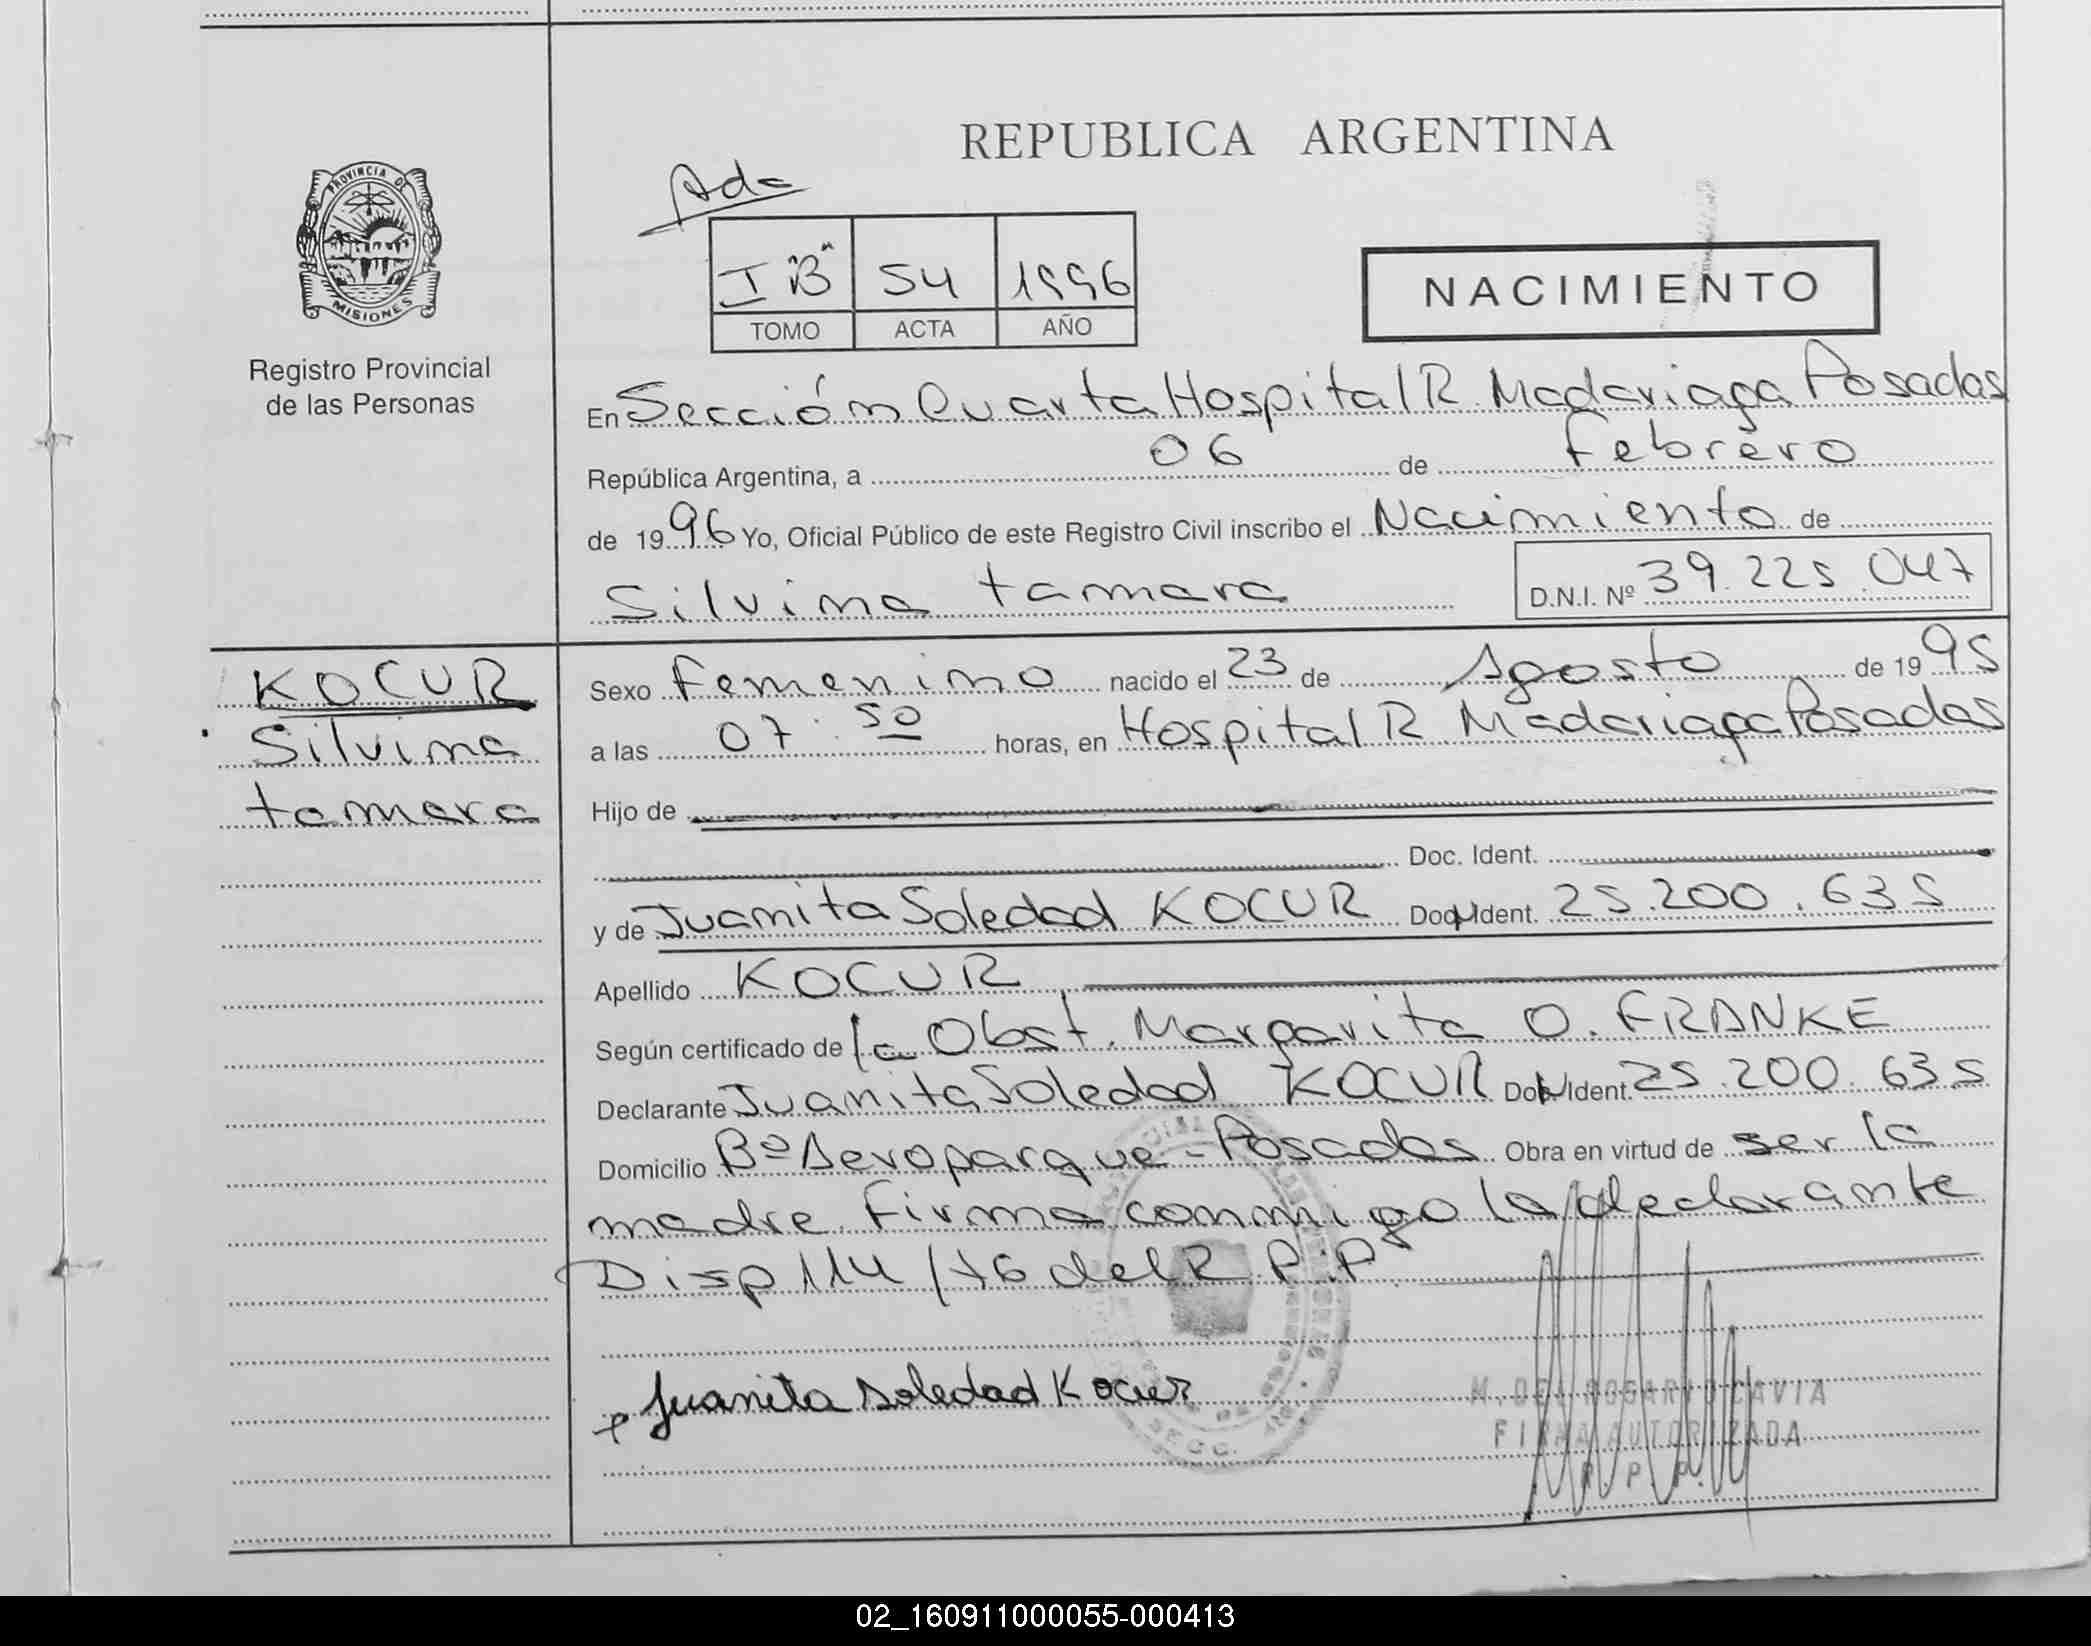 REPUBLICA ARGENTINA
PROVINCIA DE
MISIONES
Registro Provincial
de las Personas
Ada
I "B" 54 1996
TOMO ACTA AÑO
NACIMIENTO
En Sección Cuarta Hospital R. Madariaga Posadas
República Argentina, a 06 de Febrero
de 1996 Yo, Oficial Público de este Registro Civil inscribo el Nacimiento de
Silvina tamara D.N.I. Nº 39.225.047
KOCUR
Silvina
tamara
Sexo Femenino nacido el 23 de Agosto de 1995
a las 07:50 horas, en Hospital R Madariaga Posadas
Hijo de
Doc. Ident.
y de Juanita Soledad KOCUR Doc. Ident. 25.200.635
Apellido KOCUR
Según certificado de la Obst. Margarita O. FRANKE
Declarante Juanita Soledad KOCUR Doc. Ident. 25.200.635
Domicilio Bº Aeroparque - Posadas Obra en virtud de ser la
madre. Firma conmigo la declarante
Disp 114/76 del R.P.P
Juanita Soledad Kocur
M. DEL ROSARIO CAVIA
FIRMA AUTORIZADA
R. P. P.
02_160911000055-000413